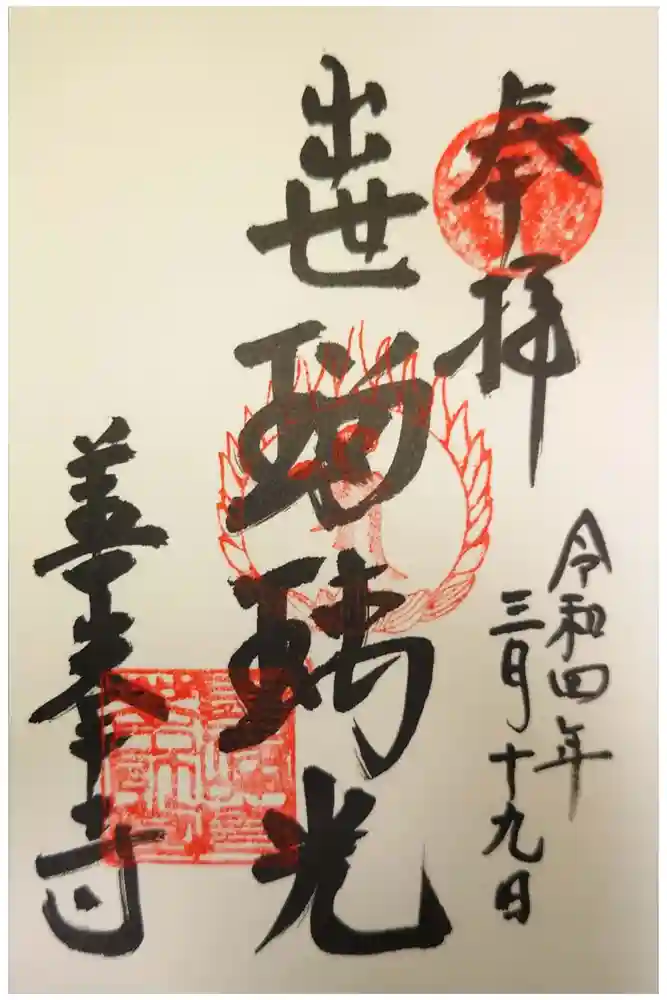 奉拝
令和四年
三月十九日
出世瑠璃光
善峯寺